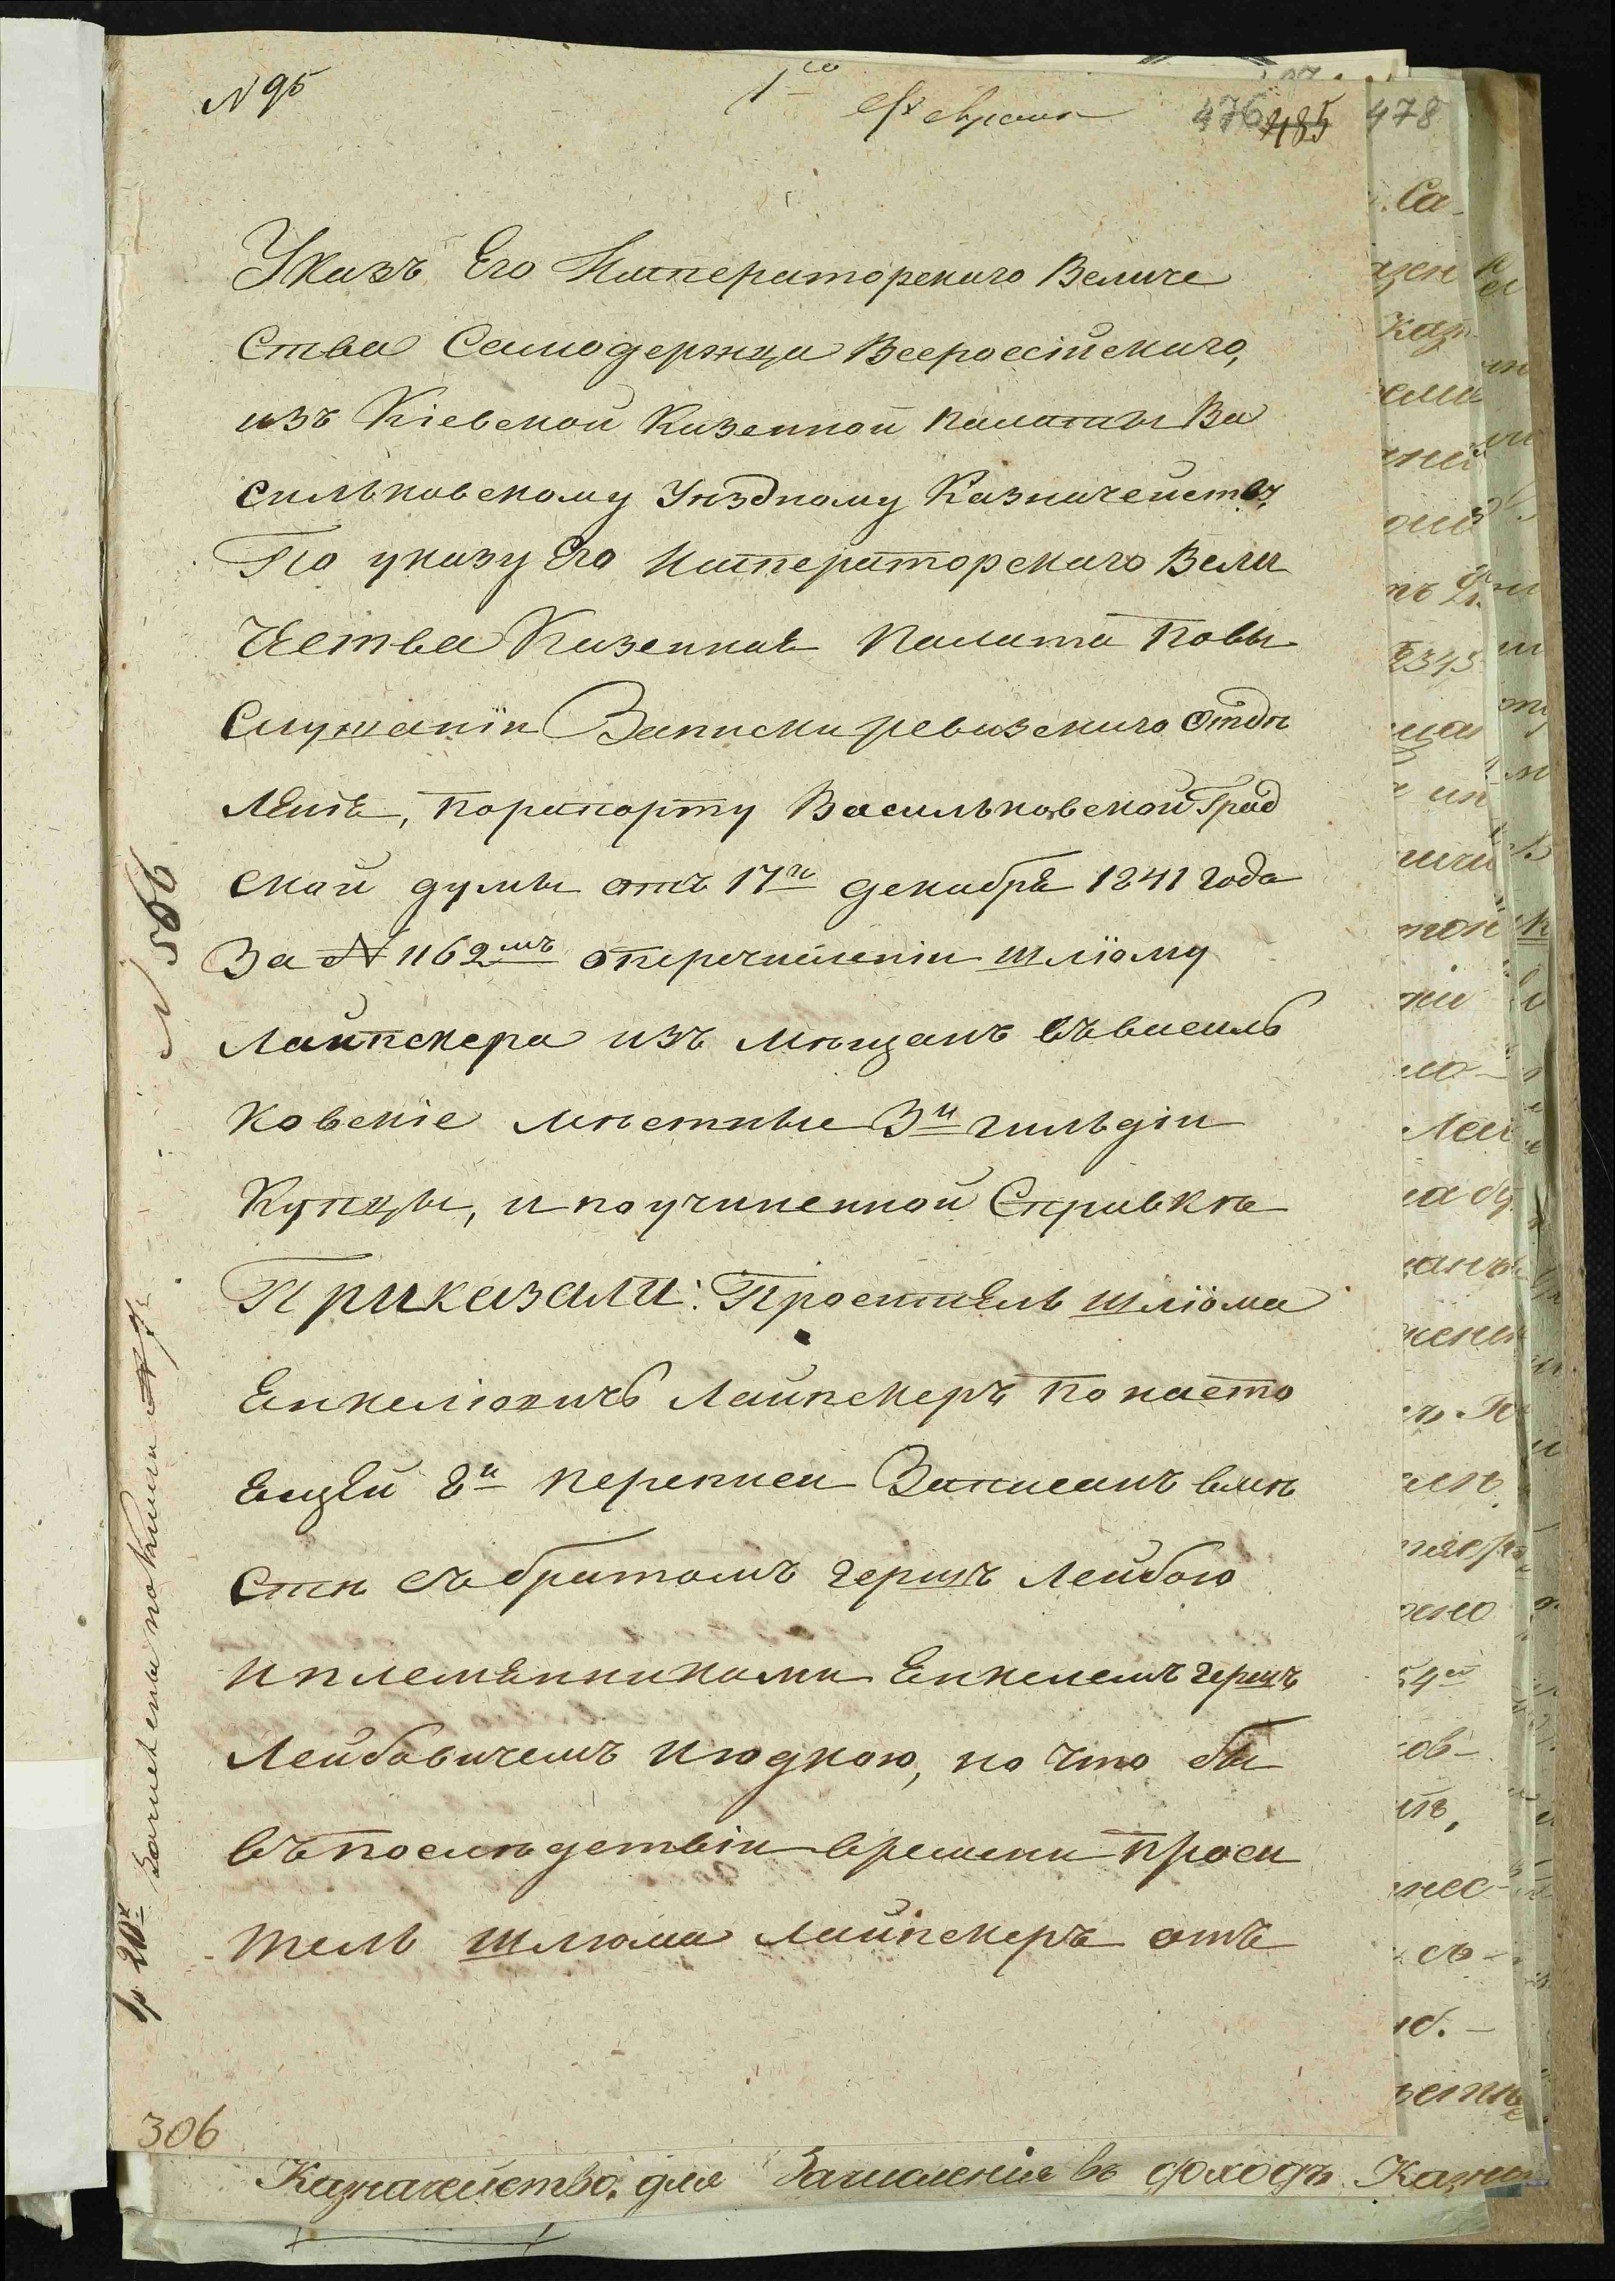 N 95
1го
февраля
476 485 478
Указъ Его Императорскаго Величе
Ства Самодержца Всероссійскаго,
изъ Кіевской Казенной палаты Ва
сильковскому Уѣздному Казначейству
По указу Его Императорскаго Вели
Чества Казенная Палата Повы
Слушаніи Записки ревизскаго Отдѣ
Ленія, Порапорту Васильковской Град
ской думы отъ 17го декабря 1841 года
За N 1162мъ оперечисленіи Шліому
Лайпскера изъ Мѣщанъ въвасиль
Ковскіе мѣстные 3й гильдіи
Купцы, и поучиненной Справкѣ
Приказали: Проситель Шліома
Енкеліовичъ Лайпскеръ Понасто
Ещей 8й переписи Записанъ вмѣ
Стѣ събратомъ Гершъ Лейбою
Иплемянниками Енкелемъ Гершъ
Лейбовичемъ Июдкою, но что бы
въпослѣдствіи времени Проси
тель Шлюма Лайпскеръ отъ
N 566
306
Казначейство, для Зачисленія въ доходъ Казны